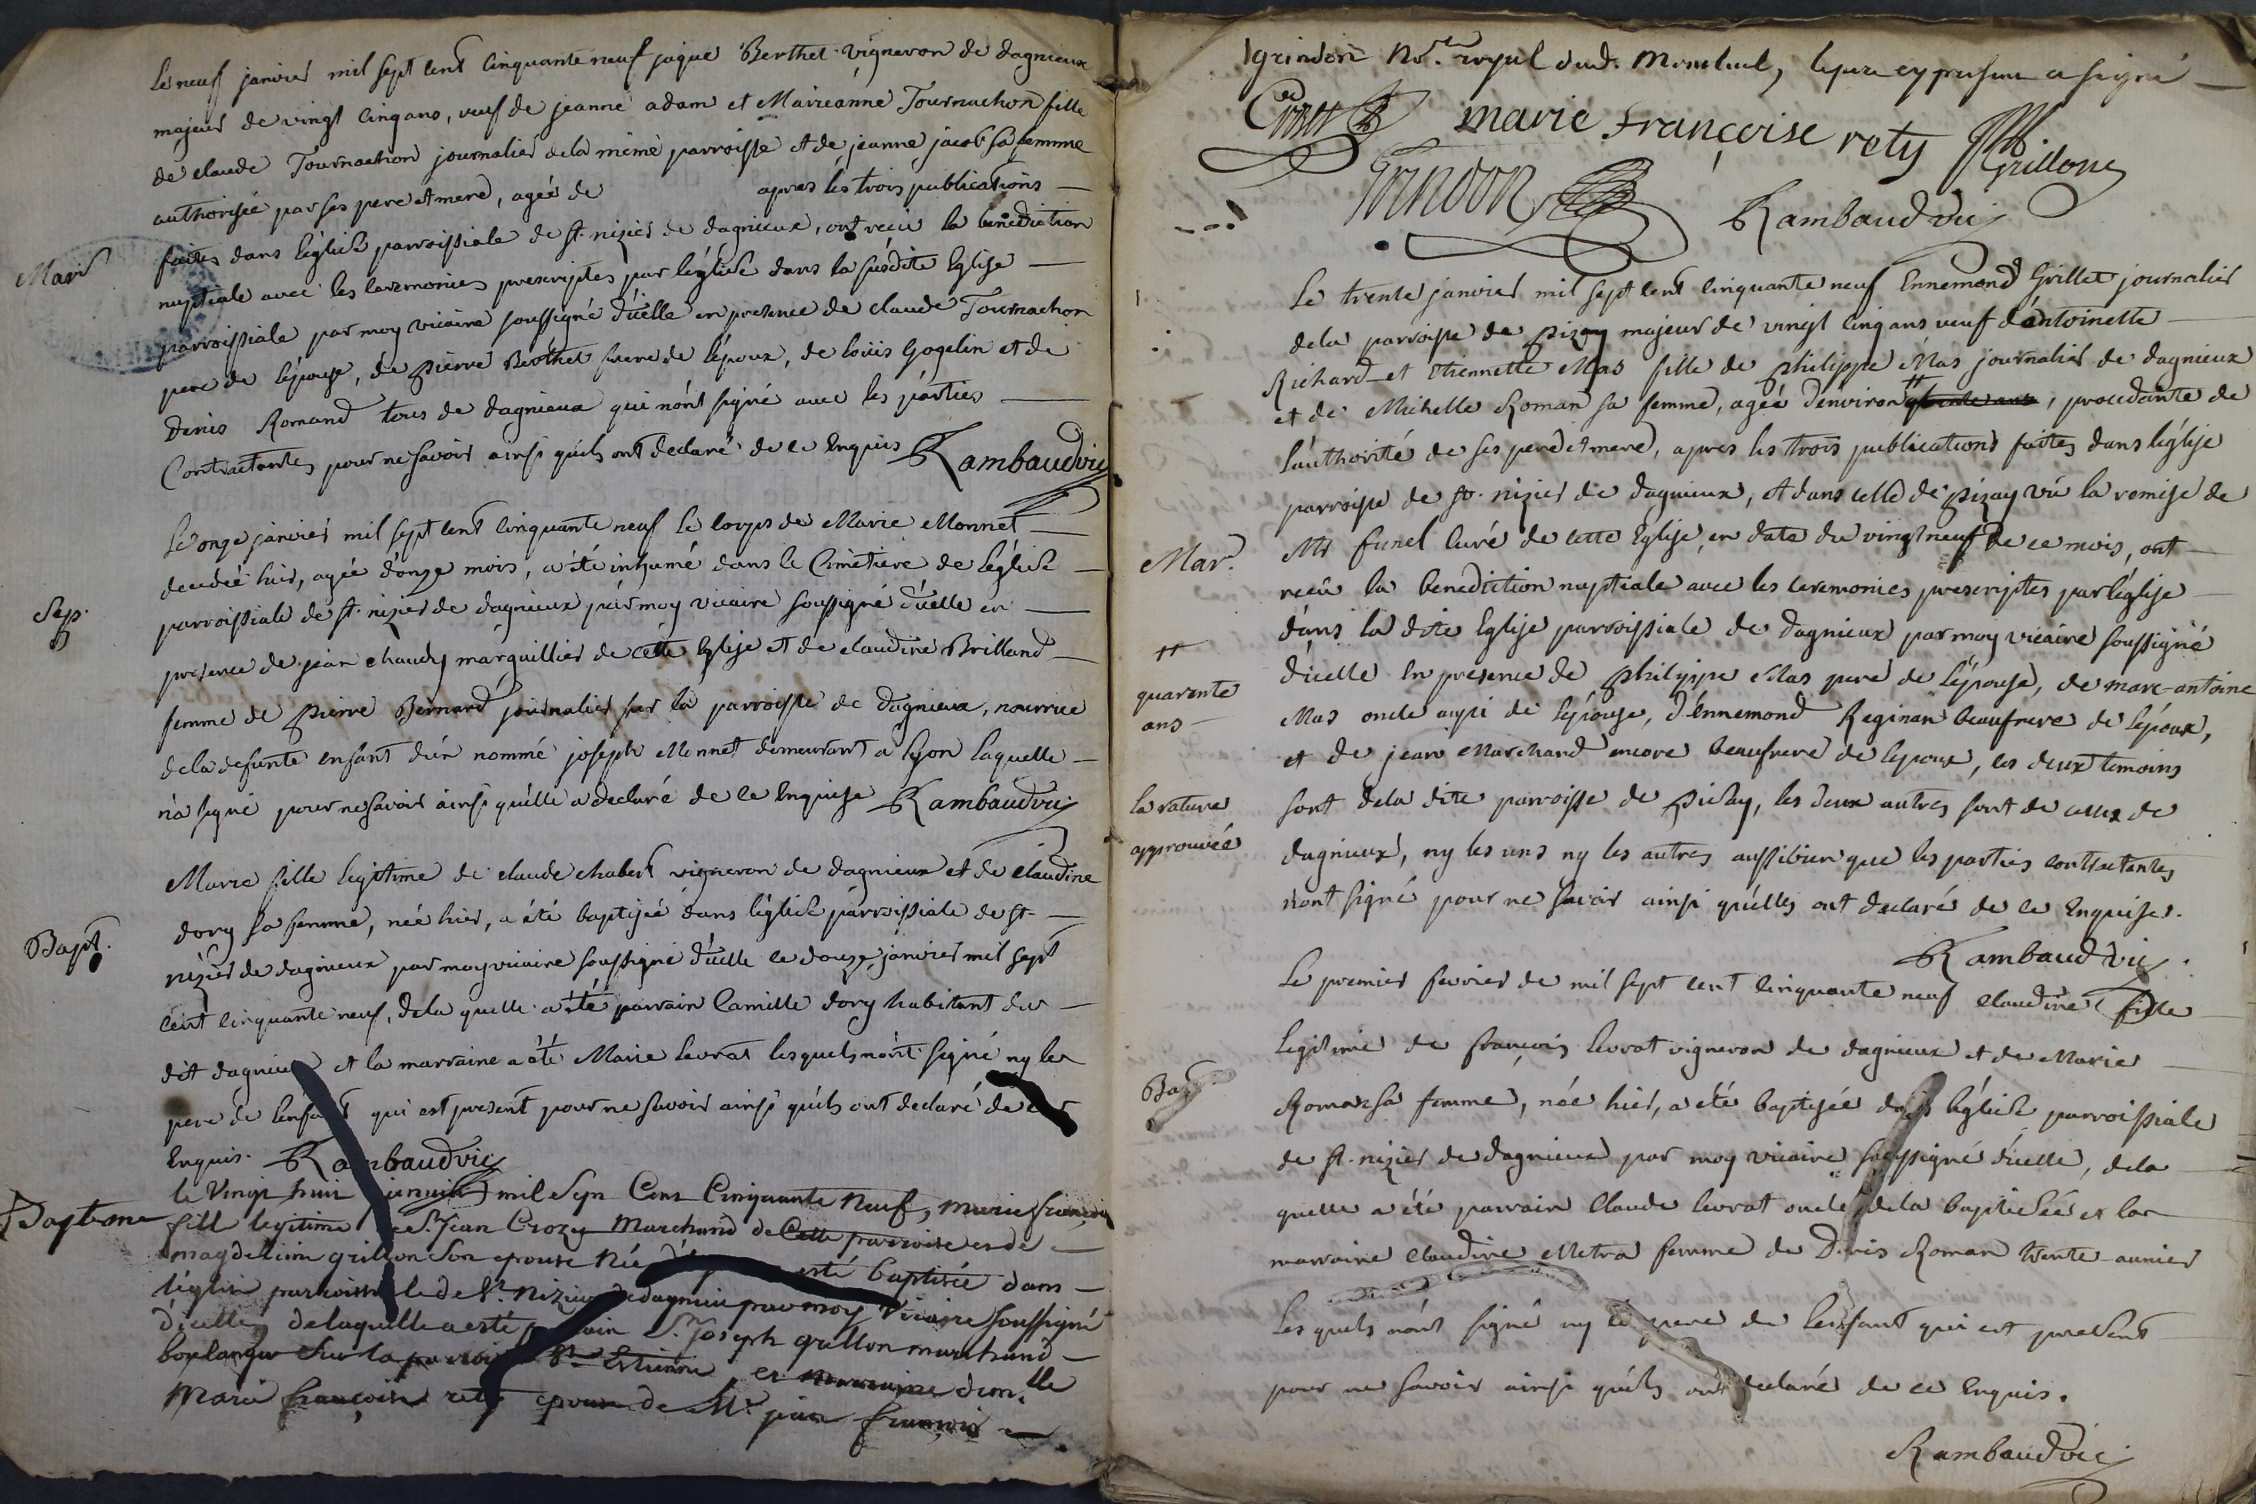 Le neuf janvier mil sept cent cinquante neuf jaque Berthet vigneron de dagnieux
majeur de vingt cinq ans, veuf de jeanne adam et Marieanne Tournachon fille
de claude Tournachon journalier de la même parroisse et de jeanne jacob sa femme
authorisée par ses pere et mere, agée de apres les trois publications
faites dans l'église parroissiale de st. nizier de dagnieux, ont reçu la benediction
Mar.
nuptiale avec les ceremonies prescriptes par l'église dans la susdite Eglise
parroissiale par moy vicaire soussigné d'icelle en presence de claude Tournachon
pere de l'épouse, de pierre Berthet frere de l'époux, de loüis Gogelin et de
Denis Romand tous de dagnieux qui n'ont signé avec les parties
Contractantes pour ne savoir ainsi qu'ils ont declaré de ce Enquis Rambaud vic
Le onze janvier mil sept cent cinquante neuf le corps de Marie Monnet
decedée hier, agée d'onze mois, a été inhumé dans le Cimetiere de l'église
Sep.
parroissiale de st. nizier de dagnieux par moy vicaire soussigné d'icelle en
presence de jean chaudy marguillier de cette Eglise et de claudine Brilland
femme de pierre Bernard journalier sur la parroisse de dagnieux, nourrice
de la defunte enfant d'un nommé joseph Monnet demeurant a lyon laquelle
n'a signé pour ne savoir ainsi qu'elle a declaré de ce Enquise Rambaud vic
Marie fille legitime de claude chabert vigneron de dagnieux et de claudine
dory sa femme, née hier, a été baptisée dans l'église parroissiale de st.
Bapt.
nizier de dagnieux par moy vicaire soussigné d'icelle ce douze janvier mil sept
cent cinquante neuf, de la quelle a été parrain Camille dory habitant du
dit dagnieux et la marraine a été Marie levrat lesquels n'ont signé ny le
pere de l'enfant qui est present pour ne savoir ainsi qu'ils ont declaré de
Enquis. Rambaud vic
le Vingt huit janvier mil Sept Cent Cinquante Neuf, marie françoise
Bapteme
fille legitime de Sr. jean Crozy Marchand de Cette parroisse et de
magdelaine grillon Son epouse Née esté baptisée dans
l'église parroissiale de St. Nizier de dagnieu par moy Vicaire soussigné
d'icelle, de laquelle a esté parrain Sr. joseph grillon marchand
boulanger sur la parroisse St. Estienne et marraine dem.lle
Marie françoise rety epouse de Mr. jean françois
grindon No.re royal aud. Montluel, le pere cy present a signé
Crozet marie françoise rety JMGrillon
Grindon Rambaud vic
Le trente janvier mil sept cent cinquante neuf Ennemond Grillet journalier
de la parroisse de pizay majeur de vingt cinq ans veuf d'antoinette
Richard et Etiennette Mas fille de philippe Mas journalier de dagnieux
et de Michelle Roman sa femme, agée d'environ , procedante de
l'authorité de ses pere et mere, apres les trois publications faites dans l'église
parroisse de st. nizier de dagnieux, et dans celle de pizay vû la remise de
Mar.
Mr funel curé de cette Eglise, en date du vingt neuf de ce mois, ont
reçû la benediction nuptiale avec les ceremonies prescriptes par l'église
dans la dite Eglise parroissiale de dagnieux par moy vicaire soussigné
quarante
ans
d'icelle en presence de philippe Mas pere de l'épouse, de marc-antoine
Mas oncle aussi de l'épouse, d'Ennemond Reginan beaufrere de l'époux,
et de jean Marchand encore beaufrere de l'epoux, ces deux temoins
la rature
approuvée
sont de la dite parroisse de pizay, les deux autres sont de celle de
dagnieux, ny les uns ny les autres aussi bien que les parties contractantes
n'ont signé pour ne savoir ainsi qu'elles ont declaré de ce Enquises.
Rambaud vic
Le premier fevrier de mil sept cent cinquante neuf claudine fille
legitime de françois levrat vigneron de dagnieux et de Marie
Bapt.
Roman sa femme, née hier, a été baptisée dans l'église parroissiale
de st. nizier de dagnieux par moy vicaire soussigné d'icelle, de la
quelle a été parrain Claude levrat oncle de la baptisée et la
marraine claudine Metra femme de Denis Roman
Les quels n'ont signé ny le pere de l'enfant qui est present
pour ne savoir ainsi qu'ils ont declaré de ce Enquis.
Rambaud vic